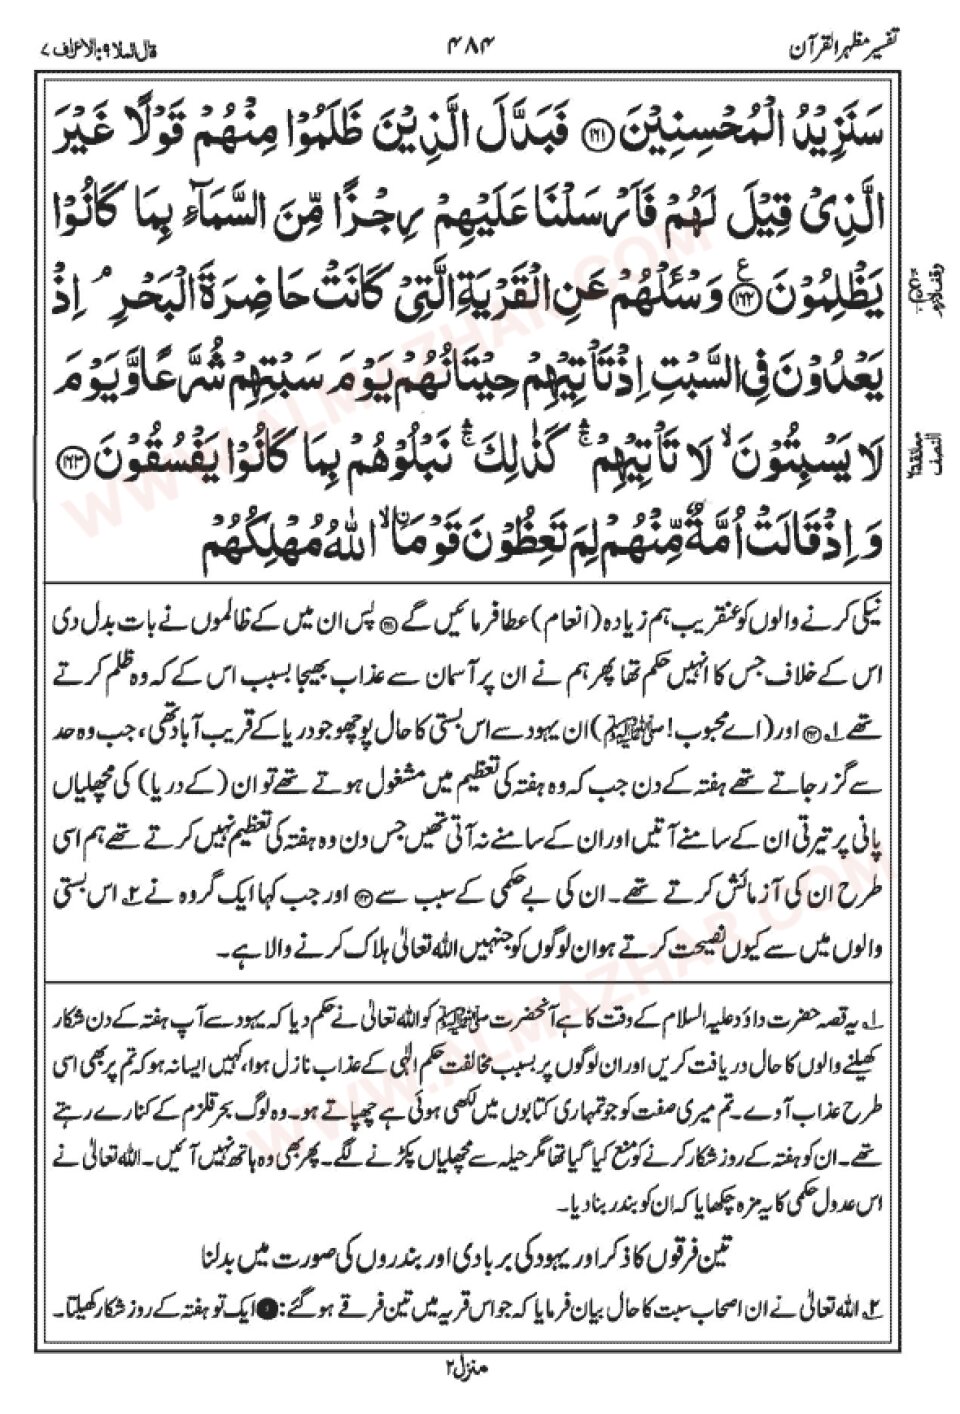 تفسیر مظہر القرآن
۴۸۴
قال الملا ۹: الاعراف ۷
سَنَزِيْدُ الْمُحْسِنِيْنَ ﴿۱۶۱﴾ فَبَدَّلَ الَّذِيْنَ ظَلَمُوْا مِنْهُمْ قَوْلًا غَيْرَ
الَّذِيْ قِيْلَ لَهُمْ فَاَرْسَلْنَا عَلَيْهِمْ رِجْزًا مِّنَ السَّمَآءِ بِمَا كَانُوْا
يَظْلِمُوْنَ ﴿۱۶۲﴾ ع وَسْـَٔلْهُمْ عَنِ الْقَرْيَةِ الَّتِيْ كَانَتْ حَاضِرَةَ الْبَحْرِ ۘ اِذْ
يَعْدُوْنَ فِي السَّبْتِ اِذْ تَاْتِيْهِمْ حِيْتَانُهُمْ يَوْمَ سَبْتِهِمْ شُرَّعًا وَّيَوْمَ
لَا يَسْبِتُوْنَ ۙ لَا تَاْتِيْهِمْ ۛۚ كَذٰلِكَ ۛۚ نَبْلُوْهُمْ بِمَا كَانُوْا يَفْسُقُوْنَ ﴿۱۶۳﴾
وَاِذْ قَالَتْ اُمَّةٌ مِّنْهُمْ لِمَ تَعِظُوْنَ قَوْمَا ۙ اللّٰهُ مُهْلِكُهُمْ
نیکی کرنے والوں کو عنقریب ہم زیادہ (انعام) عطا فرمائیں گے ﴿۱۶۱﴾ پس ان میں کے ظالموں نے بات بدل دی
اس کے خلاف جس کا انہیں حکم تھا پھر ہم نے ان پر آسمان سے عذاب بھیجا بسبب اس کے کہ وہ ظلم کرتے
تھے ۱؎ ﴿۱۶۲﴾ اور (اے محبوب! ﷺ) ان یہود سے اس بستی کا حال پوچھو جو دریا کے قریب آباد تھی، جب وہ حد
سے گزر جاتے تھے ہفتہ کے دن جب کہ وہ ہفتہ کی تعظیم میں مشغول ہوتے تھے تو ان (کے دریا) کی مچھلیاں
پانی پر تیرتی ان کے سامنے آتیں اور ان کے سامنے نہ آتی تھیں جس دن وہ ہفتہ کی تعظیم نہیں کرتے تھے ہم اسی
طرح ان کی آزمائش کرتے تھے۔ ان کی بے حکمی کے سبب سے ﴿۱۶۳﴾ اور جب کہا ایک گروہ نے ۲؎ اس بستی
والوں میں سے کیوں نصیحت کرتے ہو ان لوگوں کو جنہیں اللہ تعالیٰ ہلاک کرنے والا ہے۔
۱؎ یہ قصہ حضرت داؤد علیہ السلام کے وقت کا ہے آنحضرت ﷺ کو اللہ تعالیٰ نے حکم دیا کہ یہود سے آپ ہفتہ کے دن شکار
کھیلنے والوں کا حال دریافت کریں اور ان لوگوں پر بسبب مخالفت حکم الٰہی کے عذاب نازل ہوا، کہیں ایسا نہ ہو کہ تم پر بھی اسی
طرح عذاب آوے۔ تم میری صفت کو جو تمہاری کتابوں میں لکھی ہوئی ہے چھپاتے ہو۔ وہ لوگ بحر قلزم کے کنارے رہتے
تھے۔ ان کو ہفتہ کے روز شکار کرنے کو منع کیا گیا تھا مگر حیلہ سے مچھلیاں پکڑنے لگے۔ پھر بھی وہ ہاتھ نہیں آئیں۔ اللہ تعالیٰ نے
اس عدول حکمی کا یہ مزہ چکھایا کہ ان کو بندر بنا دیا۔
تین فرقوں کا ذکر اور یہود کی بربادی اور بندروں کی صورت میں بدلنا
۲؎ اللہ تعالیٰ نے ان اصحاب سبت کا حال بیان فرمایا کہ جو اس قریہ میں تین فرقے ہو گئے: ❶ ایک تو ہفتہ کے روز شکار کھیلتا۔
منزل ۲
WWW.ALMAZHAR.COM
WWW.ALMAZHAR.COM